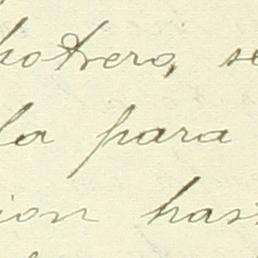 potrero, se
la para
ion hast